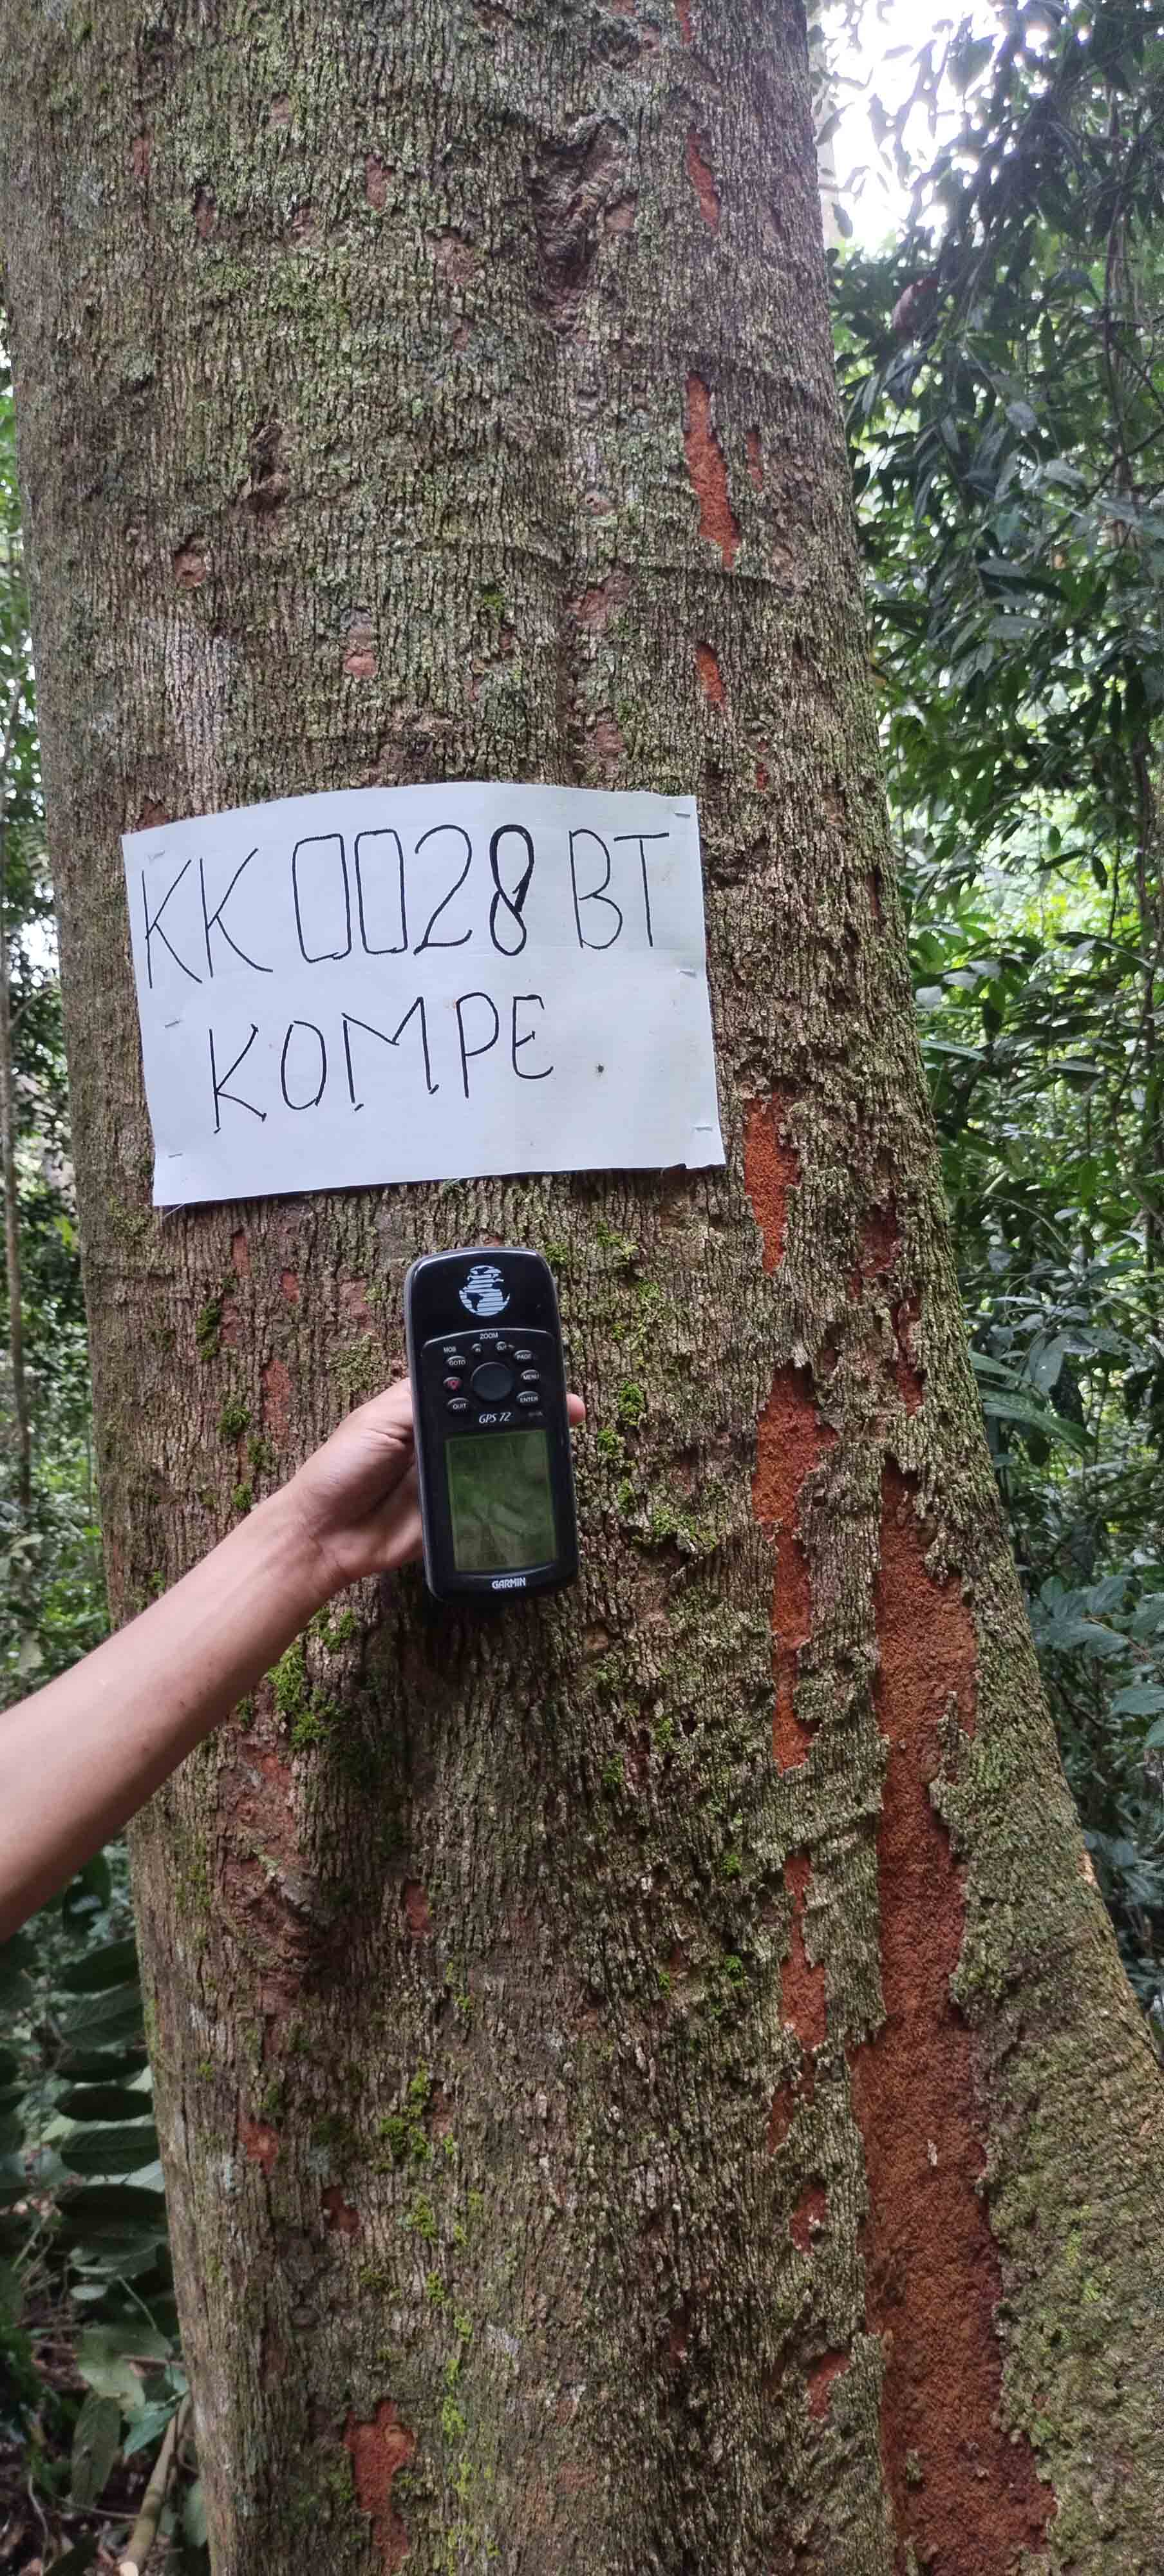 KK 0028 BT
KOMPE
ZOOM
MOB IN OUT
GOTO PAGE
MENU
QUIT ENTER
GPS 72
GARMIN